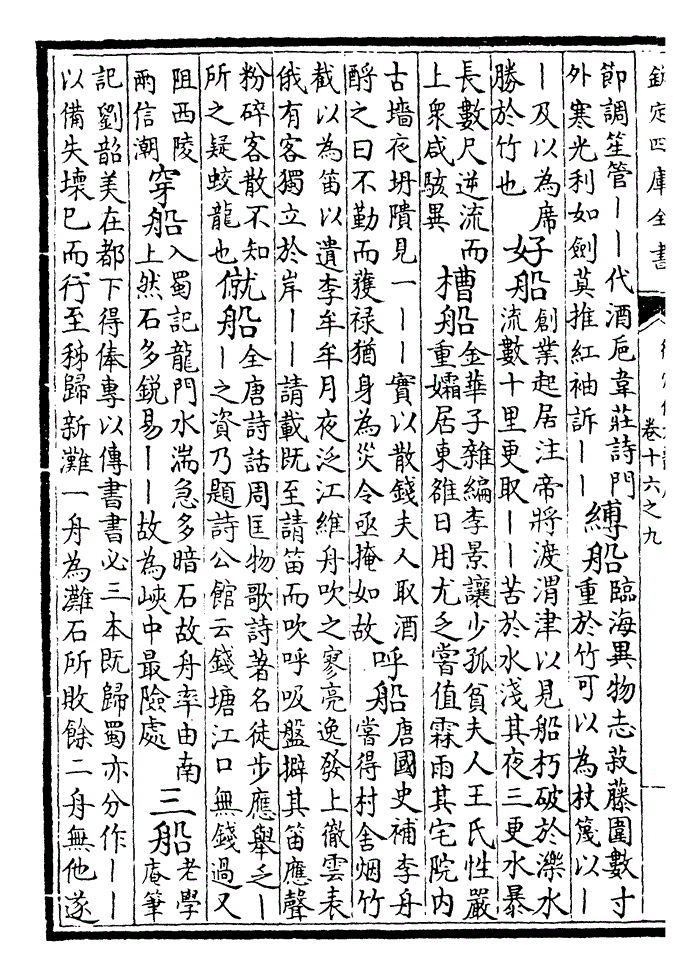 欽定四庫全書
卷十六之九
節調笙管丨丨代酒巵韋莊詩門
外寒光利如劍莫推紅袖訴丨丨
縛船
臨海異物志菽藤圍數寸
重於竹可以為杖篾以丨
丨及以為席
勝於竹也
好船
創業起居注帝將渡渭津以見船朽破於濼水
流數十里更取丨丨苦於水淺其夜三更水暴
長數尺逆流而
上衆咸駭異
槽船
金華子雜編李景讓少孤貧夫人王氏性嚴
重孀居東雒日用尤乏嘗值霖雨其宅院内
古墻夜坍隤見一丨丨實以散錢夫人取酒
酹之曰不勤而獲禄猶身為災令亟掩如故
呼船
唐國史補李舟
嘗得村舍烟竹
截以為笛以遺李牟牟月夜泛江維舟吹之寥亮逸發上徹雲表
俄有客獨立於岸丨丨請載既至請笛而吹呼吸盤擗其笛應聲
粉碎客散不知
所之疑蛟龍也
僦船
全唐詩話周匡物歌詩著名徒步應舉乏丨
丨之資乃題詩公館云錢塘江口無錢過又
阻西陵
兩信潮
穿船
入蜀記龍門水湍急多暗石故舟率由南
上然石多鋭易丨丨故為峽中最險處
三船
老學
庵筆
記劉韶美在都下得俸專以傳書書必三本既歸蜀亦分作丨丨
以備失壞已而行至秭歸新灘一舟為灘石所敗餘二舟無他遂